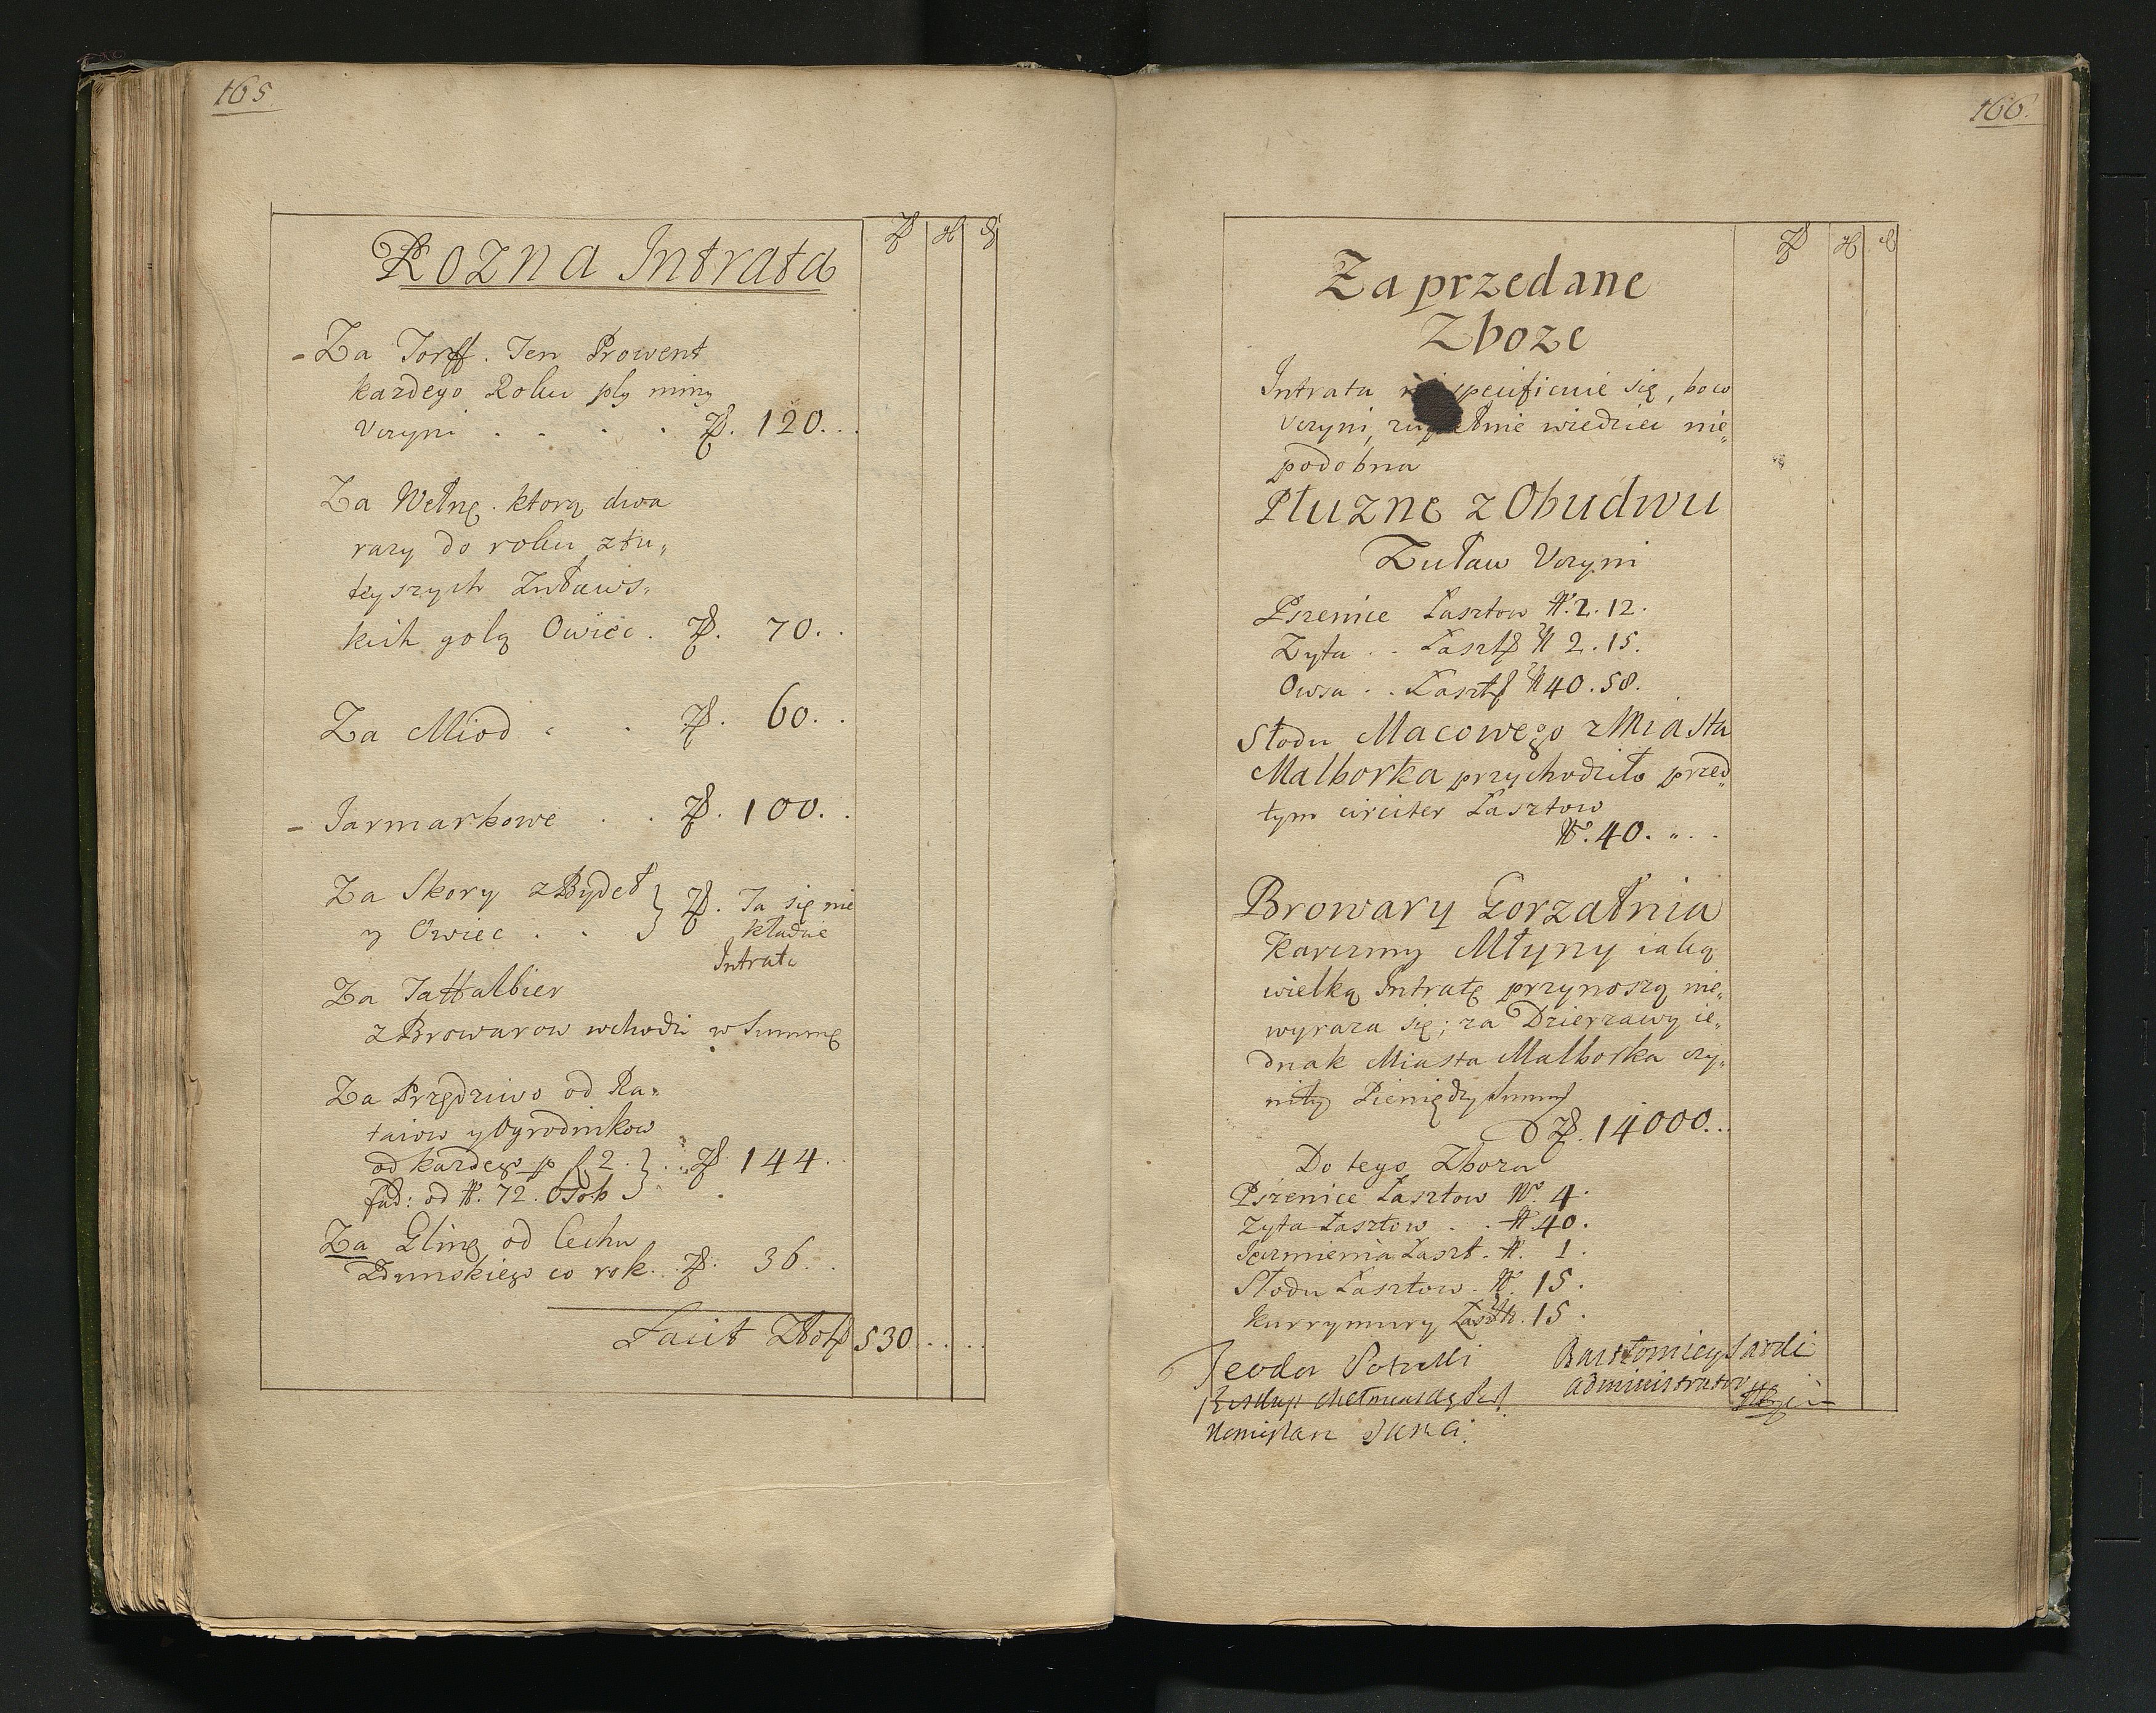 165
Rozna Intrata
Za Torff. Ten Prowent
kazdego Roku
uczyni . . . . 120.
Za Wełnę. ktorą dwa
razy do roku ztu„
teyszych Zuławs.
kich golą Owiec. 70.
Za Miod . . 60.
Jarmarkowe . . 100.
Za Skory z Bydeł
y Owiec . . Ta się nie
kładnie
Intrata
Za Taffalbier
z Browarow wchodzi w Summę
Za Przędziwo od Ra„
taiow y Ogrodnikow
od kazdego p f 2. 144.
fad: od N. 72. Osob
Za Glinę od Cechu
Zdunskiego co rok. 36.
Facit Złot 530
166.
Za przedane
Zboze
Intrata specificuie się, bo co
Uczyni, wiedziec nie„
podobna
Płuzne z Obudwu
Zuław Uczyni
Pszenice Łasztow N. 2. 12.
Zyta . . Łaszt N 2. 15.
Owsa . . Łaszt N 40. 58.
Słodu Macowego z Miasta
Malborka przychodziło przed„
tym circiter Łasztow
N. 40. „ .
Browary Gorzałnia
Karczmy Młyny iaką
wielką Intratę przynoszą nie„
wyraza się; za Dzierzawy ie„
dnak Miasta Malborka czy„
niły Pieniędzy Summ
14000.
Do tego Zboza
Pszenice Łasztow N. 4.
Zyta Łasztow . . N. 40.
Jęczmienia Łaszt. N. 1.
Słodu Łasztow. N. 15.
Kurzymury Łaszt. 15.
Teodor Potocki
Biskup Chełminski
Stanisław
Bartłomiey Sardi
Administrator